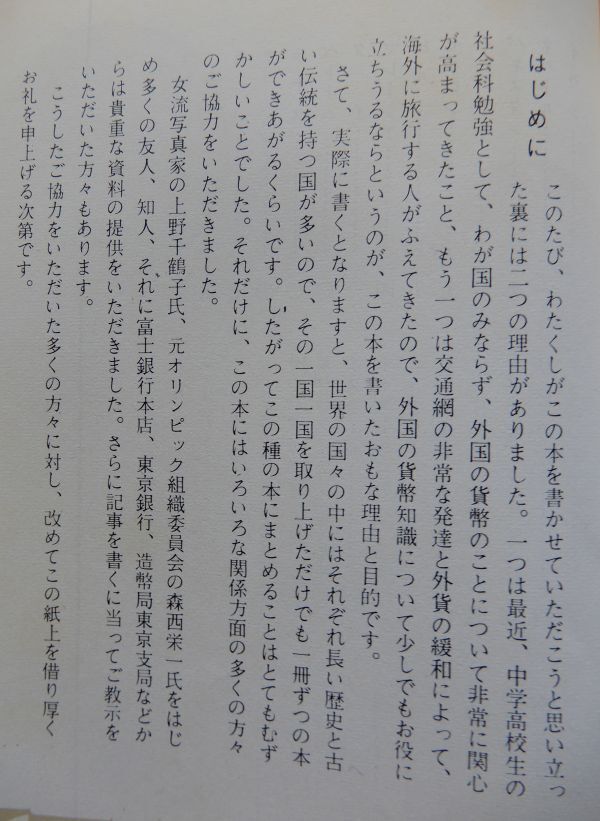 はじめに
このたび、わたくしがこの本を書かせていただこうと思い立っ
た裏には二つの理由がありました。一つは最近、中学高校生の
社会科勉強として、わが国のみならず、外国の貨幣のことについて非常に関心
が高まってきたこと、もう一つは交通網の非常な発達と外貨の緩和によって、
海外に旅行する人がふえてきたので、外国の貨幣知識について少しでもお役に
立ちうるならというのが、この本を書いたおもな理由と目的です。
さて、実際に書くとなりますと、世界の国々の中にはそれぞれ長い歴史と古
い伝統を持つ国が多いので、その一国一国を取り上げただけでも一冊ずつの本
ができあがるくらいです。したがってこの種の本にまとめることはとてもむず
かしいことでした。それだけに、この本にはいろいろな関係方面の多くの方々
のご協力をいただきました。
女流写真家の上野千鶴子氏、元オリンピック組織委員会の森西栄一氏をはじ
め多くの友人、知人、それに富士銀行本店、東京銀行、造幣局東京支局などか
らは貴重な資料の提供をいただきました。さらに記事を書くに当ってご教示を
いただいた方々もあります。
こうしたご協力をいただいた多くの方々に対し、改めてこの紙上を借り厚く
お礼を申上げる次第です。